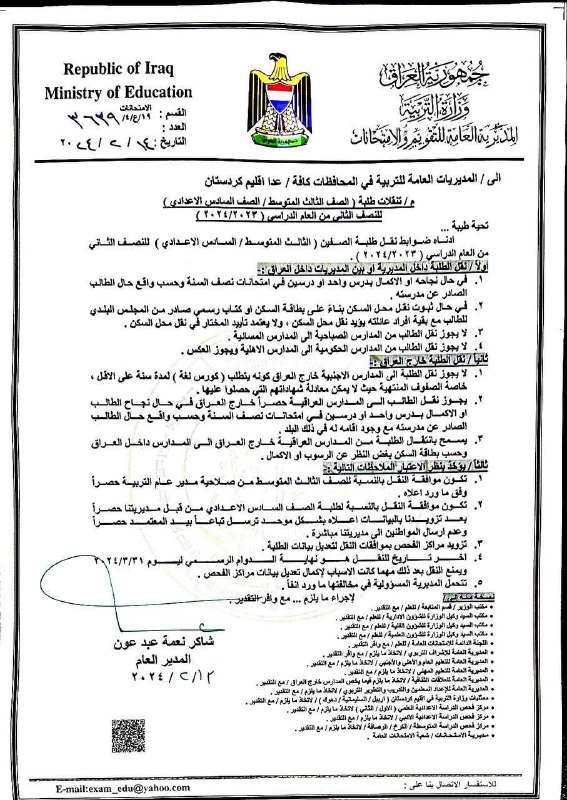 Republic of Iraq
Ministry of Education
جمهورية العراق
وزارة التربية
المديرية العامة للتقويم والامتحانات
القسم : الامتحانات
العدد : ٣٦٣٩/٤/ع/١٩
التاريخ : ٢٠٢٤/٢/١٤
الى / المديريات العامة للتربية في المحافظات كافة / عدا اقليم كردستان
م / تنقلات طلبة ( الصف الثالث المتوسط / الصف السادس الاعدادي )
للنصف الثاني من العام الدراسي ( ٢٠٢٤/٢٠٢٣ )
تحية طيبة ...
ادناه ضوابط نقل طلبة الصفين ( الثالث المتوسط / السادس الاعدادي ) للنصف الثاني
من العام الدراسي ( ٢٠٢٤/٢٠٢٣ ) .
اولاً / نقل الطلبة داخل المديرية او بين المديريات داخل العراق :-
١. في حال نجاحه او الاكمال بدرس واحد او درسين في امتحانات نصف السنة وحسب واقع حال الطالب
الصادر عن مدرسته .
٢. في حال ثبوت نقل محل السكن بناءً على بطاقة السكن او كتاب رسمي صادر من المجلس البلدي
للطالب مع بقية افراد عائلته يؤيد نقل محل السكن ، ولا يعتمد تأييد المختار في نقل محل السكن .
٣. لا يجوز نقل الطالب من المدارس الصباحية الى المدارس المسائية .
٤. لا يجوز نقل الطالب من المدارس الحكومية الى المدارس الاهلية ويجوز العكس .
ثانياً / نقل الطلبة خارج العراق :-
١. لا يجوز نقل الطلبة الى المدارس الاجنبية خارج العراق كونه يتطلب ( كورس لغة ) لمدة سنة على الأقل ،
خاصة الصفوف المنتهية حيث لا يمكن معادلة شهاداتهم التي حصلوا عليها .
٢. يجوز نقل الطالب الى المدارس العراقية حصراً خارج العراق في حال نجاح الطالب
او الاكمال بدرس واحد او درسين في امتحانات نصف السنة وحسب واقع حال الطالب
الصادر عن مدرسته مع وجود اقامه له في ذلك البلد .
٣. يسمح بانتقال الطلبة من المدارس العراقية خارج العراق الى المدارس داخل العراق
وحسب بطاقة السكن بغض النظر عن الرسوب او الاكمال .
ثالثاً / يؤخذ بنظر الاعتبار الملاحظات التالية :-
١. تكون موافقة النقل بالنسبة للصف الثالث المتوسط من صلاحية مدير عام التربية حصراً
وفق ما ورد اعلاه .
٢. تكون موافقة النقل بالنسبة لطلبة الصف السادس الاعدادي من قبل مديريتنا حصراً
بعد تزويدنا بالبيانات اعلاه بشكل موحد ترسل تباعاً بيد المعتمد حصراً
وعدم ارسال المواطنين الى مديريتنا مباشرة .
٣. تزويد مراكز الفحص بموافقات النقل لتعديل بيانات الطلبة .
٤. اخر تاريخ للنقل هو نهاية الدوام الرسمي ليوم ٢٠٢٤/٣/٣١
ويمنع النقل بعد ذلك مهما كانت الاسباب لإكمال تعديل بيانات مراكز الفحص .
٥. تتحمل المديرية المسؤولية في مخالفتها ما ورد انفاً .
لاجراء ما يلزم ... مع وافر التقدير .
شاكر نعمة عبد عون
المدير العام
٢٠٢٤/٢/١٣
نسخة منه الى /
• مكتب الوزير / قسم المتابعة / للعلم / مع التقدير .
• مكتب السيد وكيل الوزارة للشؤون الادارية / للعلم / مع التقدير .
• مكتب السيد وكيل الوزارة للشؤون الفنية / للعلم / مع التقدير .
• مكتب السيد وكيل الوزارة للشؤون العلمية / للعلم / مع التقدير .
• اللجنة الدائمة للامتحانات العامة / للعلم / مع وافر التقدير .
• المديرية العامة للإشراف التربوي / لاتخاذ ما يلزم / مع وافر التقدير .
• المديرية العامة للتعليم العام والاهلي والأجنبي / لاتخاذ ما يلزم / مع التقدير .
• المديرية العامة للتعليم المهني / لاتخاذ ما يلزم / مع التقدير .
• المديرية العامة للعلاقات الثقافية / لاتخاذ ما يلزم فيما يخص المدارس خارج العراق / مع التقدير .
• المديرية العامة لإعداد المعلمين والتدريب والتطوير التربوي / لاتخاذ ما يلزم / مع التقدير .
• ممثليات وزارة التربية في اقليم كردستان ( اربيل / السليمانية / دهوك ) / لاتخاذ ما يلزم / مع التقدير .
• مركز فحص الدراسة الاعدادية العلمي ( الاول / الثاني ) لاتخاذ ما يلزم / مع التقدير .
• مركز فحص الدراسة الاعدادية الادبي / لاتخاذ ما يلزم / مع التقدير .
• مركز فحص الدراسة المتوسطة / الكرخ / الرصافة / لاتخاذ ما يلزم / مع التقدير .
• مديرية الامتحانات / شعبة الامتحانات العامة .
E-mail:exam_edu@yahoo.com
للاستفسار الاتصال بنا على :